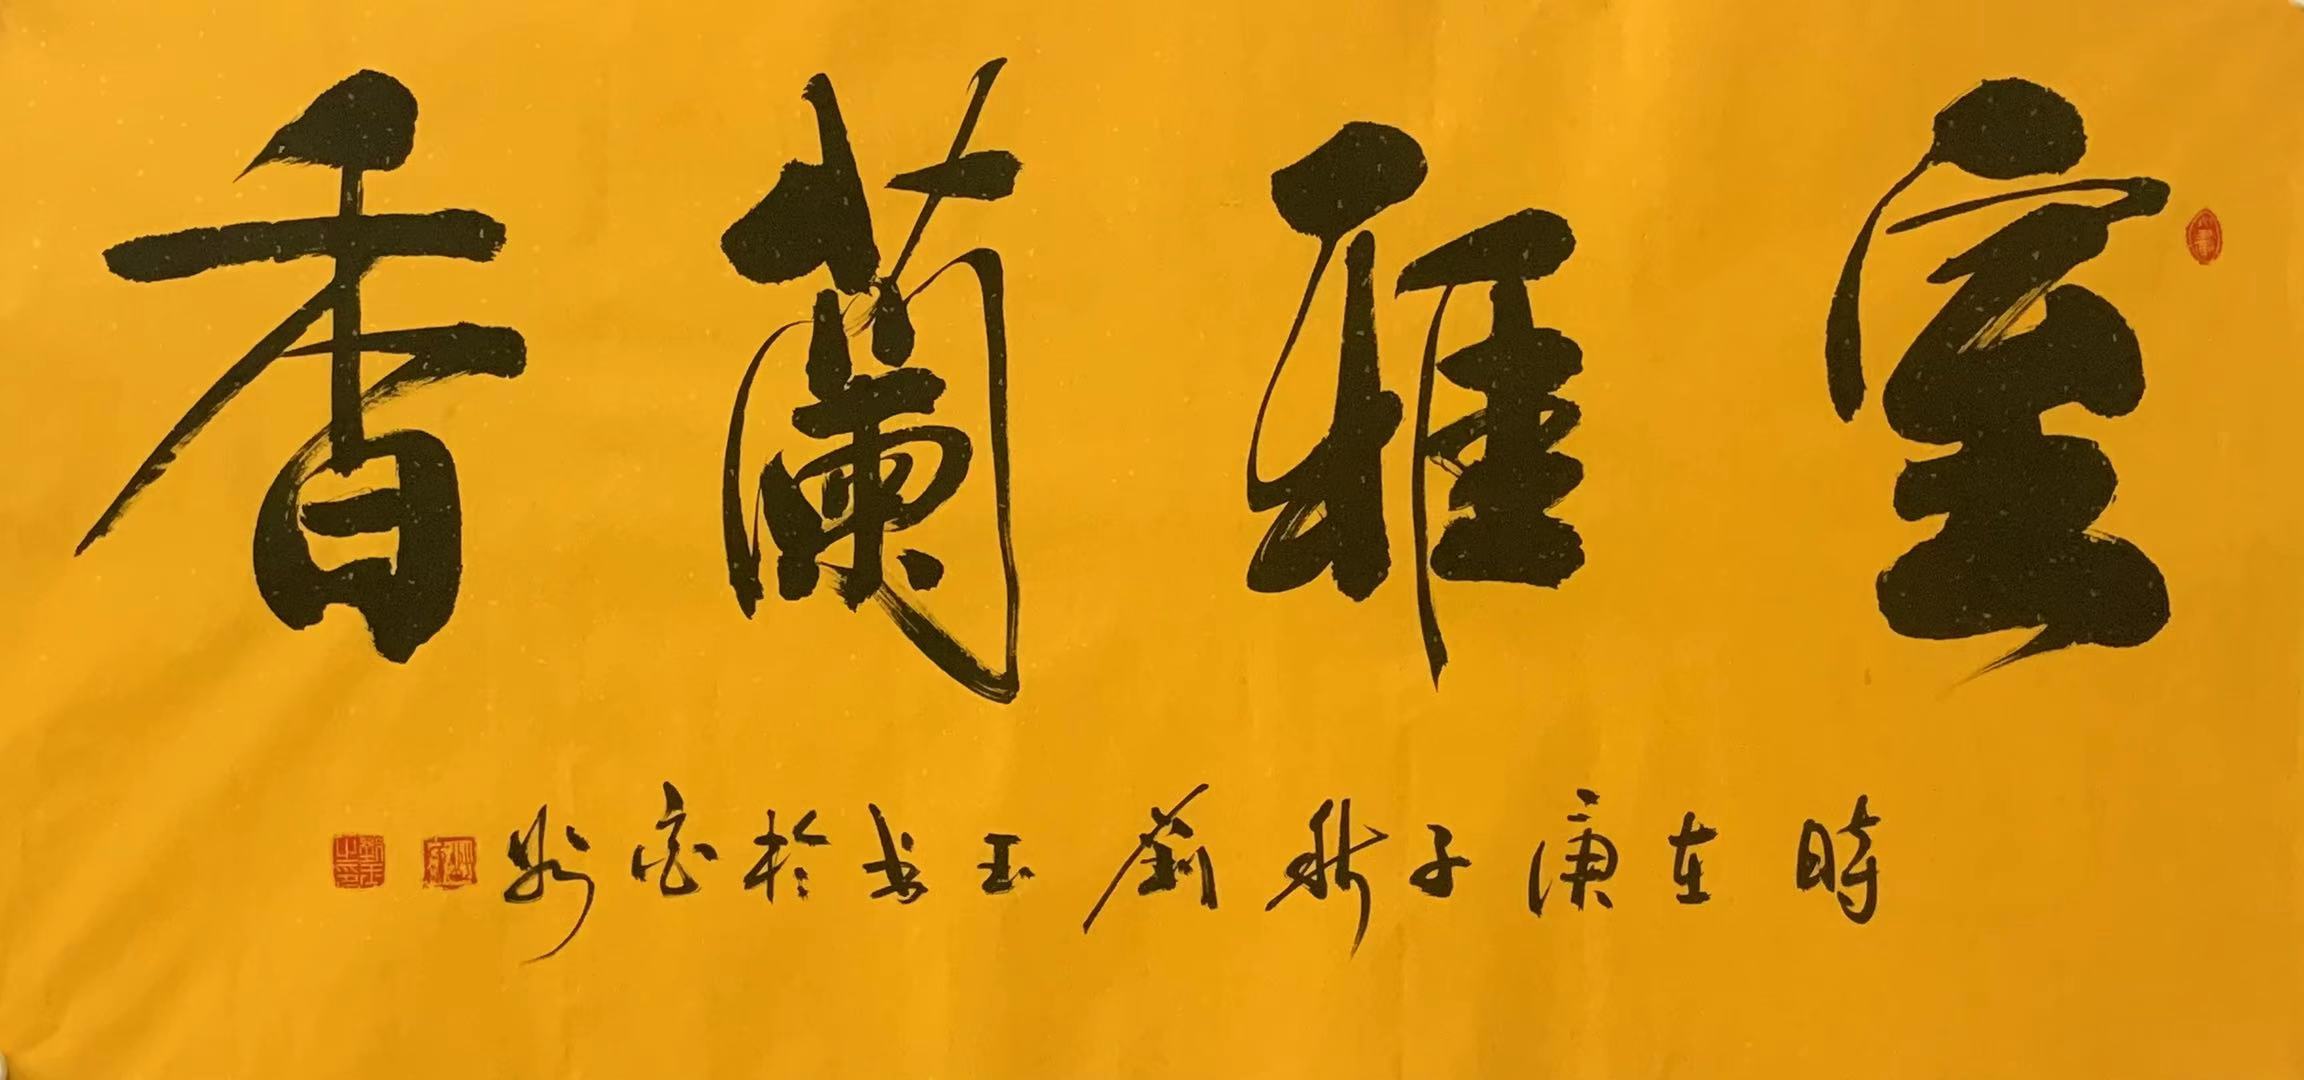 室雅蘭香
時在庚子秋劉玉書於